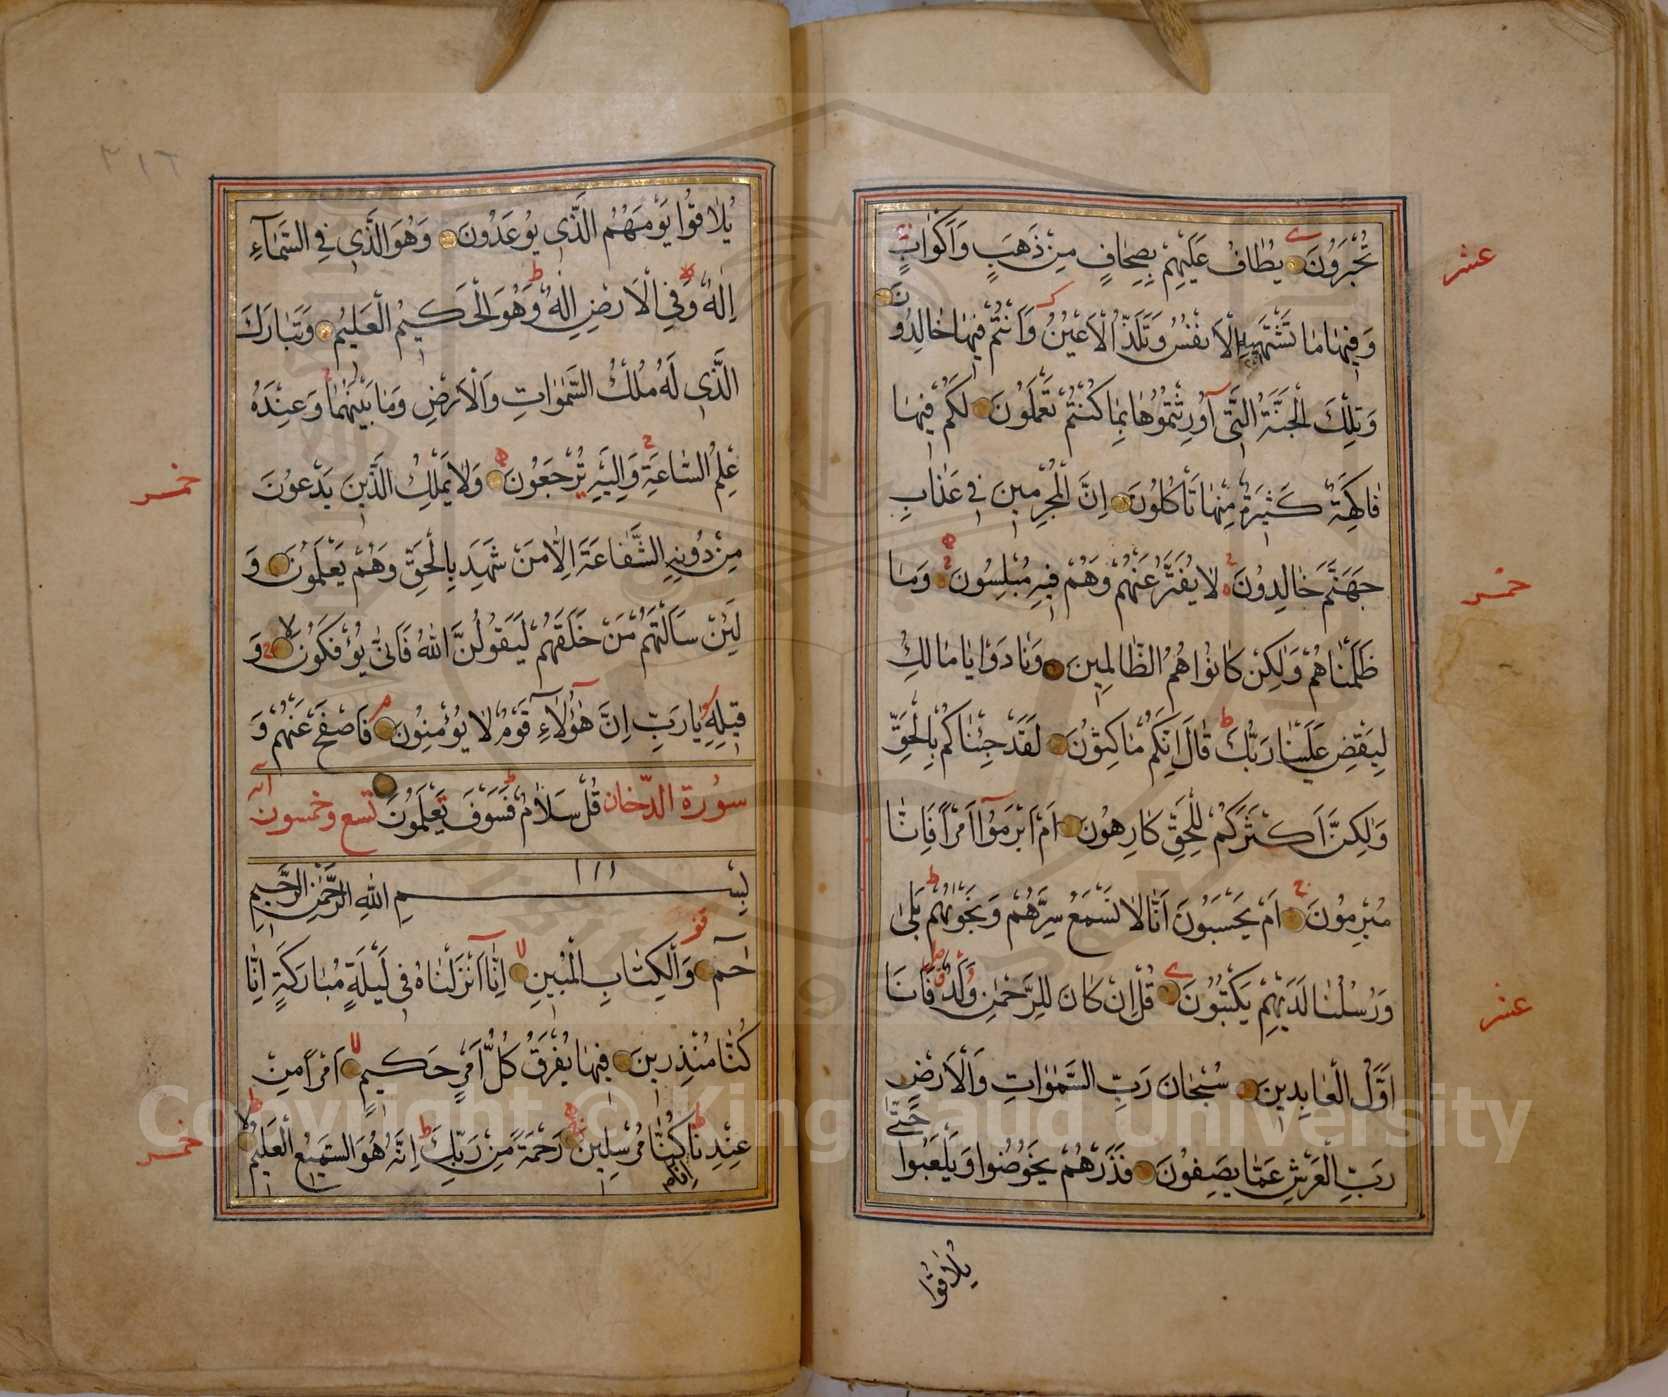 تُحْبَرُونَ يُطَافُ عَلَيْهِمْ بِصِحَافٍ مِنْ ذَهَبٍ وَاَكْوَابٍ
عشر
وَفِيهَا مَا تَشْتَهِيهِ الْاَنْفُسُ وَتَلَذُّ الْاَعْيُنُ وَاَنْتُمْ فِيهَا خَالِدُونَ
وَتِلْكَ الْجَنَّةُ الَّتِى اُورِثْتُمُوهَا بِمَا كُنْتُمْ تَعْمَلُونَ لَكُمْ فِيهَا
فَاكِهَةٌ كَثِيرَةٌ مِنْهَا تَأْكُلُونَ اِنَّ الْمُجْرِمِينَ فِى عَذَابِ
جَهَنَّمَ خَالِدُونَ لَا يُفَتَّرُ عَنْهُمْ وَهُمْ فِيهِ مُبْلِسُونَ وَمَا
خمس
ظَلَمْنَاهُمْ وَلٰكِنْ كَانُوا هُمُ الظَّالِمِينَ وَنَادَوْا يَا مَالِكُ
لِيَقْضِ عَلَيْنَا رَبُّكَ قَالَ اِنَّكُمْ مَاكِثُونَ لَقَدْ جِئْنَاكُمْ بِالْحَقِّ
وَلٰكِنَّ اَكْثَرَكُمْ لِلْحَقِّ كَارِهُونَ اَمْ اَبْرَمُوا اَمْرًا فَاِنَّا
مُبْرِمُونَ اَمْ يَحْسَبُونَ اَنَّا لَا نَسْمَعُ سِرَّهُمْ وَنَجْوٰيهُمْ بَلٰى
وَرُسُلُنَا لَدَيْهِمْ يَكْتُبُونَ قُلْ اِنْ كَانَ لِلرَّحْمٰنِ وَلَدٌ فَاَنَا
عشر
اَوَّلُ الْعَابِدِينَ سُبْحَانَ رَبِّ السَّمٰوَاتِ وَالْاَرْضِ
رَبِّ الْعَرْشِ عَمَّا يَصِفُونَ فَذَرْهُمْ يَخُوضُوا وَيَلْعَبُوا حَتّٰى
يُلَاقُوا
٢١٦
يُلَاقُوا يَوْمَهُمُ الَّذِى يُوعَدُونَ وَهُوَ الَّذِى فِى السَّمَاءِ
اِلٰهٌ وَفِى الْاَرْضِ اِلٰهٌ وَهُوَ الْحَكِيمُ الْعَلِيمُ وَتَبَارَكَ
الَّذِى لَهُ مُلْكُ السَّمٰوَاتِ وَالْاَرْضِ وَمَا بَيْنَهُمَا وَعِنْدَهُ
عِلْمُ السَّاعَةِ وَاِلَيْهِ تُرْجَعُونَ وَلَا يَمْلِكُ الَّذِينَ يَدْعُونَ
خمس
مِنْ دُونِهِ الشَّفَاعَةَ اِلَّا مَنْ شَهِدَ بِالْحَقِّ وَهُمْ يَعْلَمُونَ وَ
لَئِنْ سَاَلْتَهُمْ مَنْ خَلَقَهُمْ لَيَقُولُنَّ اللّٰهُ فَاَنّٰى يُؤْفَكُونَ وَ
قِيلِهِ يَا رَبِّ اِنَّ هٰؤُلَاءِ قَوْمٌ لَا يُؤْمِنُونَ فَاصْفَحْ عَنْهُمْ وَ
سورة الدّخان قُلْ سَلَامٌ فَسَوْفَ تَعْلَمُونَ تسع وخمسون آية
بِسْمِ اللّٰهِ الرَّحْمٰنِ الرَّحِيمِ
حٰمٓ وَالْكِتَابِ الْمُبِينِ اِنَّا اَنْزَلْنَاهُ فِى لَيْلَةٍ مُبَارَكَةٍ اِنَّا
كُنَّا مُنْذِرِينَ فِيهَا يُفْرَقُ كُلُّ اَمْرٍ حَكِيمٍ اَمْرًا مِنْ
عِنْدِنَا اِنَّا كُنَّا مُرْسِلِينَ رَحْمَةً مِنْ رَبِّكَ اِنَّهُ هُوَ السَّمِيعُ الْعَلِيمُ
خمس
Copyright © King Saud University